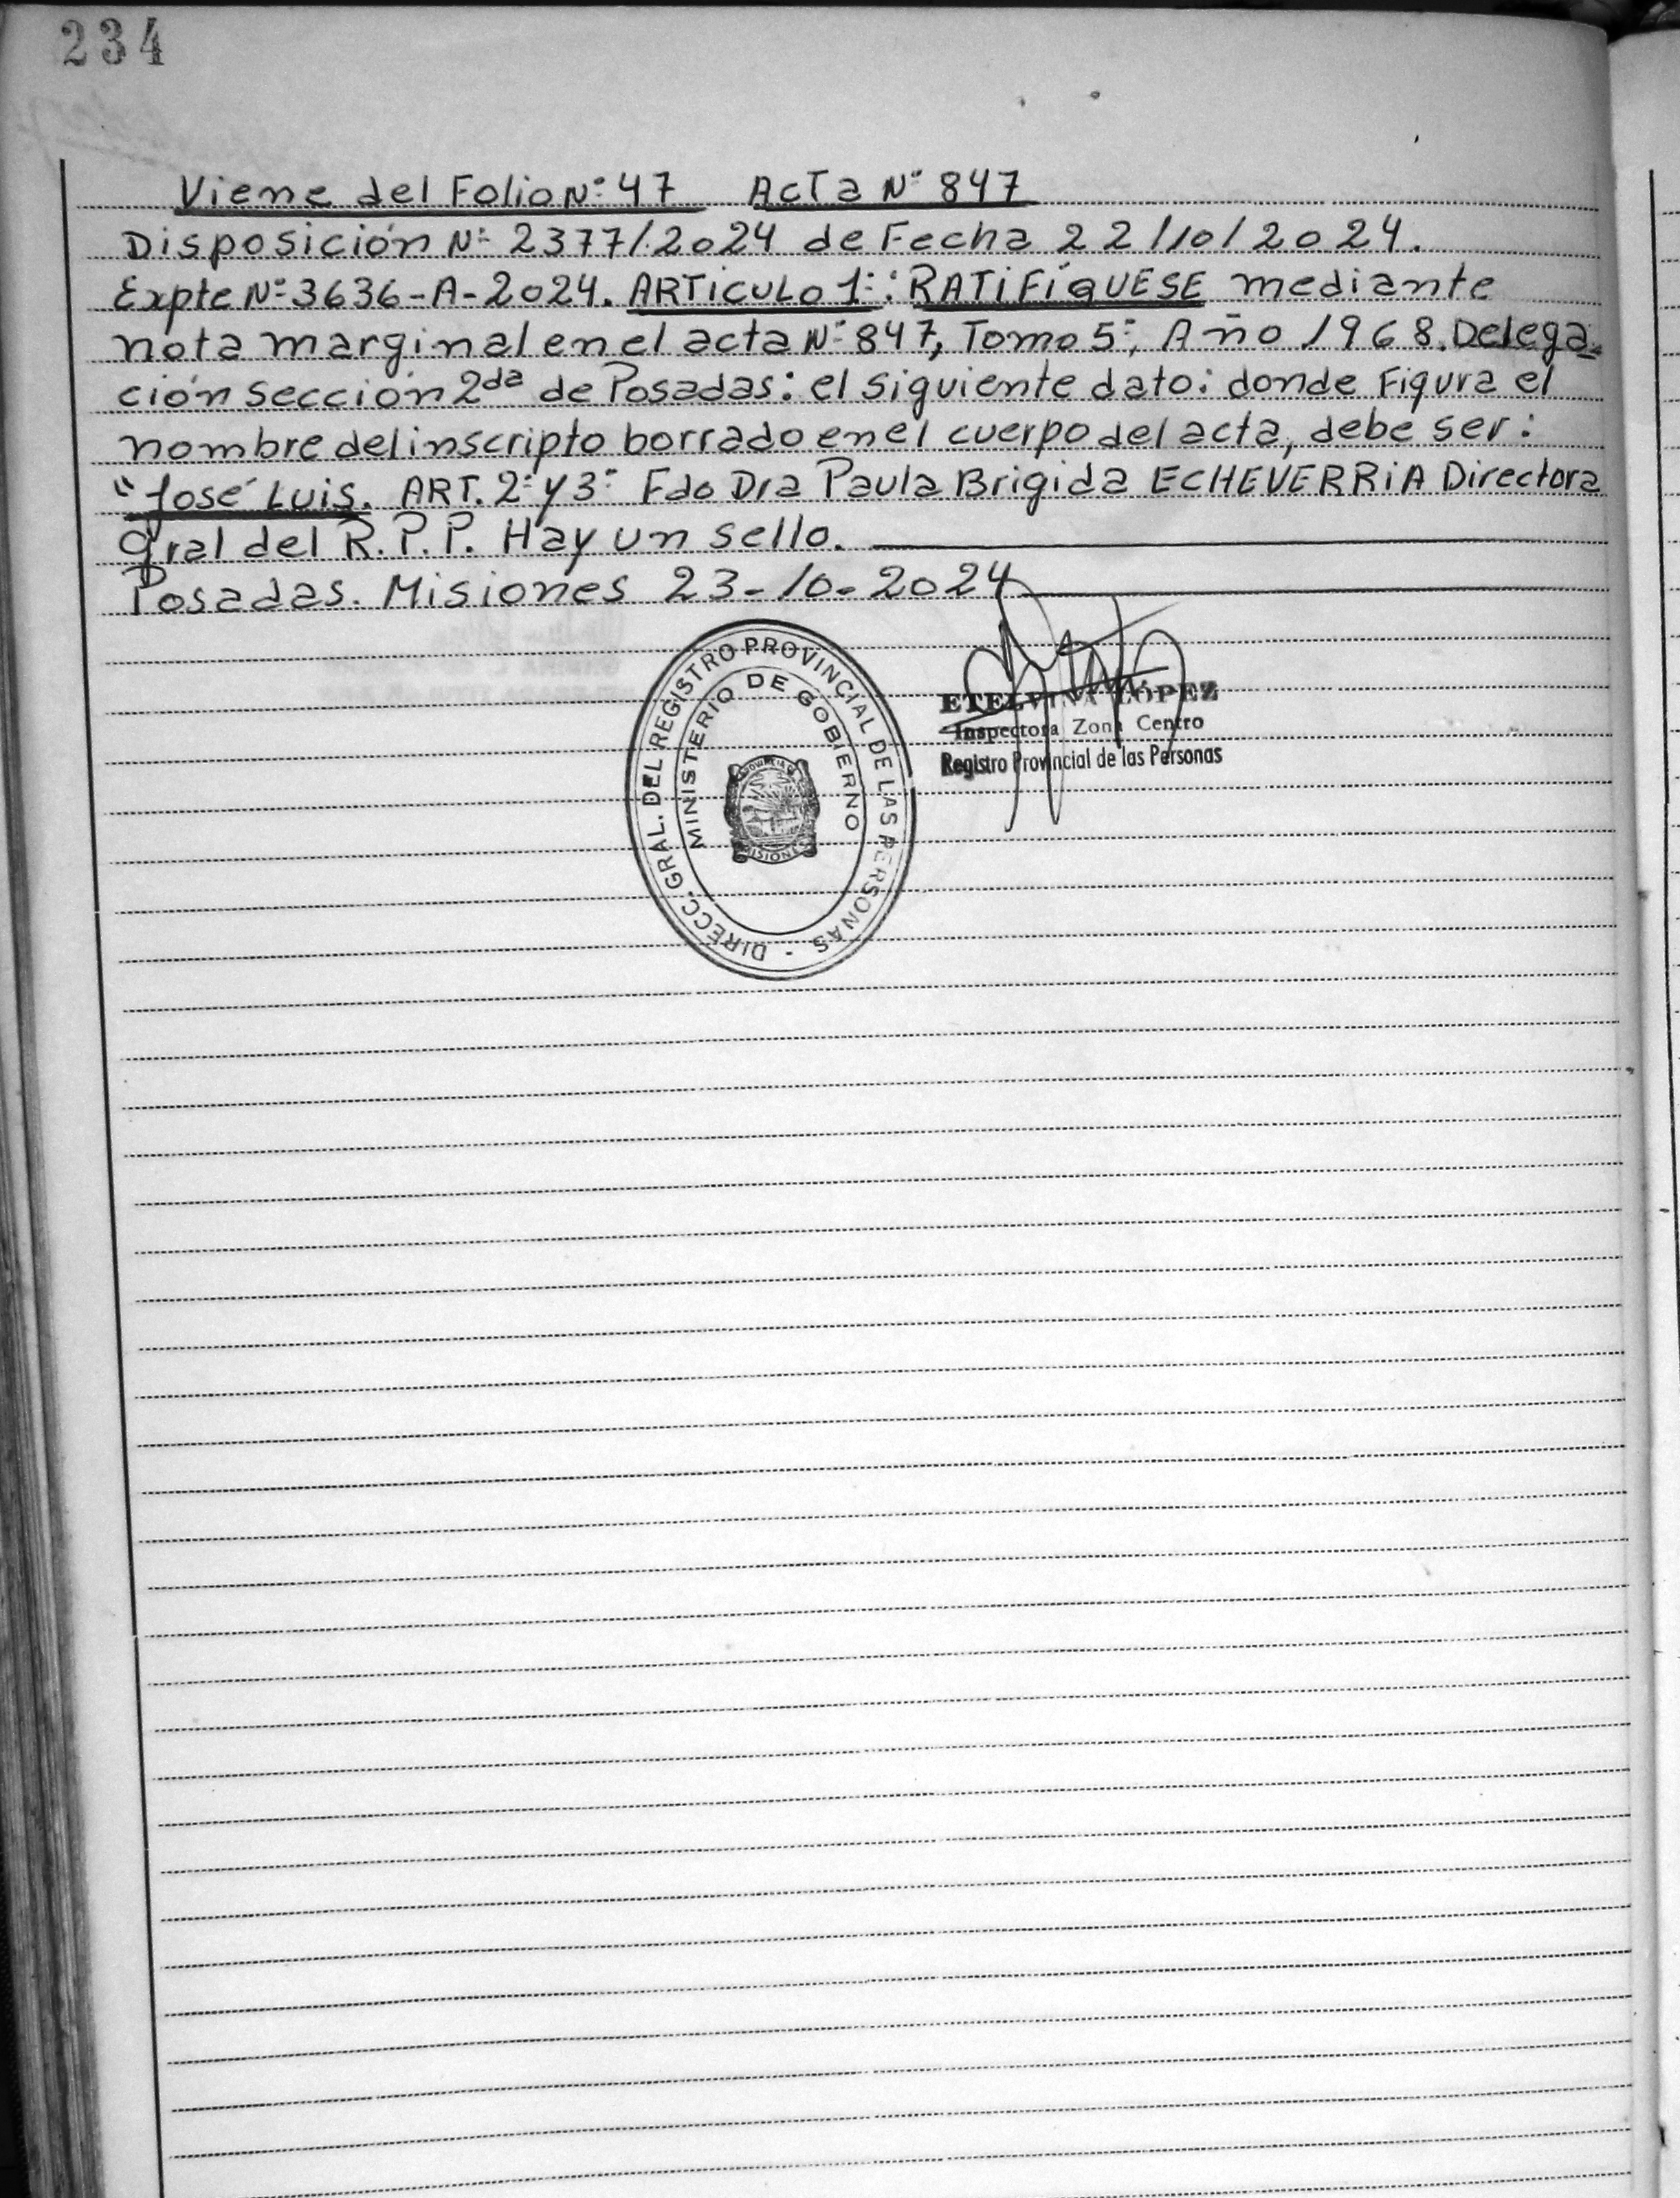 234
Viene del Folio Nº 47 Acta Nº 847
Disposición Nº 2377/2024 de Fecha 22/10/2024.
Expte Nº 3636-A-2024. ARTICULO 1º: RATIFÍQUESE mediante
nota marginal en el acta Nº 847, Tomo 5º, Año 1968. Delega-
ción sección 2da de Posadas: el siguiente dato: donde Figura el
nombre del inscripto borrado en el cuerpo del acta, debe ser:
"José Luis. ART. 2º y 3º Fdo Dra Paula Brigida ECHEVERRIA Directora
Gral del R.P.P. Hay un sello.
Posadas. Misiones 23-10-2024
DIRECC. GRAL. DEL REGISTRO PROVINCIAL DE LAS PERSONAS -
MINISTERIO DE GOBIERNO
PROVINCIA
MISIONES
ETELVINA LÓPEZ
Inspectora Zona Centro
Registro Provincial de las Personas